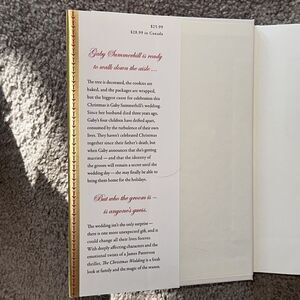 $25.99
$28.99 in Canada
Gaby Summerhill is ready
to walk down the aisle …
The tree is decorated, the cookies are
baked, and the packages are wrapped,
but the biggest cause for celebration this
Christmas is Gaby Summerhill's wedding.
Since her husband died three years ago,
Gaby's four children have drifted apart,
consumed by the turbulence of their own
lives. They haven't celebrated Christmas
together since their father's death, but
when Gaby announces that she's getting
married — and that the identity of
the groom will remain a secret until the
wedding day — she may finally be able to
bring them home for the holidays.
But who the groom is —
is anyone's guess.
The wedding isn't the only surprise —
there is one more unexpected gift, and it
could change all their lives forever.
With deeply affecting characters and the
emotional twists of a James Patterson
thriller, The Christmas Wedding is a fresh
look at family and the magic of the season.